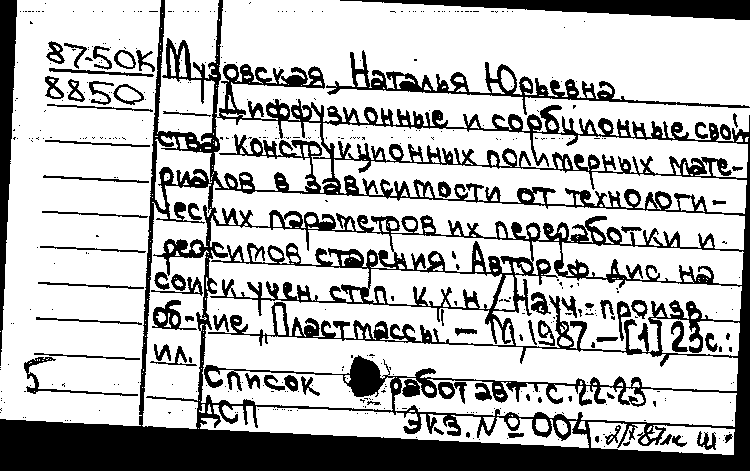 87-50К
8850
Музовская, Наталья Юрьевна.
Диффузионные и сорбционные свой
ства конструкционных полимерных мате-
риалов в зависимости от технологи-
ческих параметров их переработки и
режимов старения: Автореф. дис. на
соиск. учен. степ. к.х.н. / Науч.-произв.
об-ние "Пластмассы". - М., 1987. - [1], 23с.:
ил.
5
Список работ авт.: с. 22-23.
ДСП Экз. № 004.